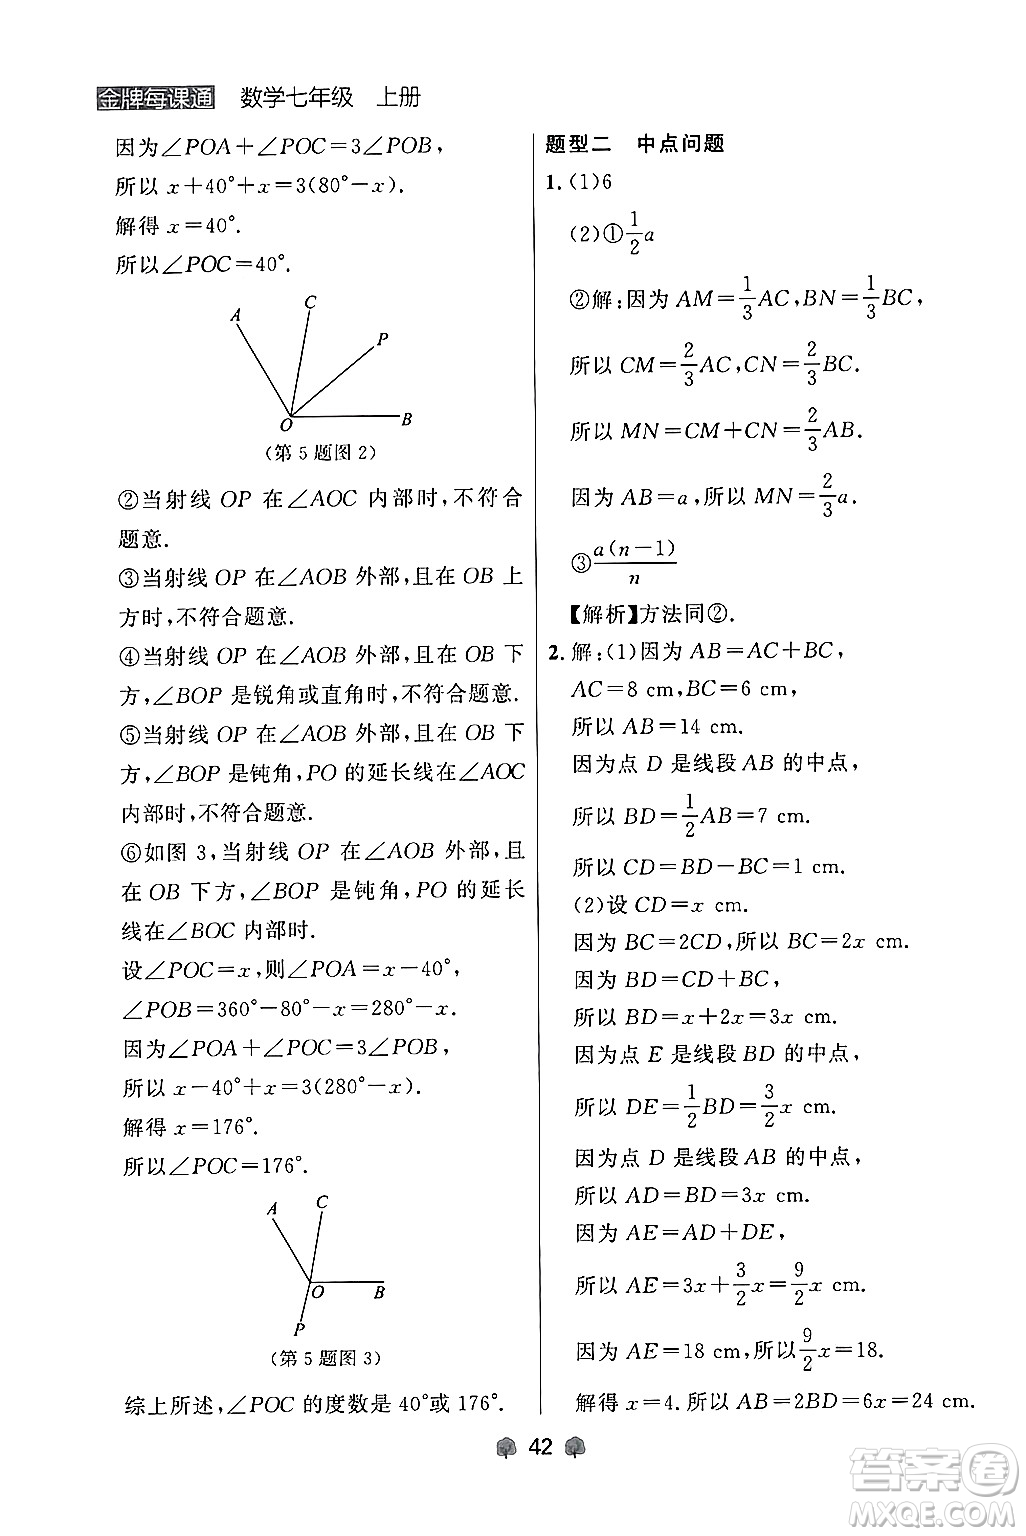 金牌每课通 数学七年级 上册
因为∠POA+∠POC=3∠POB,
所以 x+40°+x=3(80°-x).
解得 x=40°.
所以∠POC=40°.
A C P
O B
(第 5 题图 2)
②当射线 OP 在∠AOC 内部时,不符合
题意.
③当射线 OP 在∠AOB 外部,且在 OB 上
方时,不符合题意.
④当射线 OP 在∠AOB 外部,且在 OB 下
方,∠BOP 是锐角或直角时,不符合题意.
⑤当射线 OP 在∠AOB 外部,且在 OB 下
方,∠BOP 是钝角,PO 的延长线在∠AOC
内部时,不符合题意.
⑥如图 3,当射线 OP 在∠AOB 外部,且
在 OB 下方,∠BOP 是钝角,PO 的延长
线在∠BOC 内部时.
设∠POC=x,则∠POA=x-40°,
∠POB=360°-80°-x=280°-x.
因为∠POA+∠POC=3∠POB,
所以 x-40°+x=3(280°-x).
解得 x=176°.
所以∠POC=176°.
A C
O B
P
(第 5 题图 3)
综上所述,∠POC 的度数是 40°或 176°.
题型二 中点问题
1. (1)6
(2)①1/2a
②解:因为 AM=1/3AC,BN=1/3BC,
所以 CM=2/3AC,CN=2/3BC.
所以 MN=CM+CN=2/3AB.
因为 AB=a,所以 MN=2/3a.
③a(n-1)/n
【解析】方法同②.
2. 解:(1)因为 AB=AC+BC,
AC=8 cm,BC=6 cm,
所以 AB=14 cm.
因为点 D 是线段 AB 的中点,
所以 BD=1/2AB=7 cm.
所以 CD=BD-BC=1 cm.
(2)设 CD=x cm.
因为 BC=2CD,所以 BC=2x cm.
因为 BD=CD+BC,
所以 BD=x+2x=3x cm.
因为点 E 是线段 BD 的中点,
所以 DE=1/2BD=3/2x cm.
因为点 D 是线段 AB 的中点,
所以 AD=BD=3x cm.
因为 AE=AD+DE,
所以 AE=3x+3/2x=9/2x cm.
因为 AE=18 cm,所以9/2x=18.
解得 x=4.所以 AB=2BD=6x=24 cm.
42
答案卷
MXQE.COM